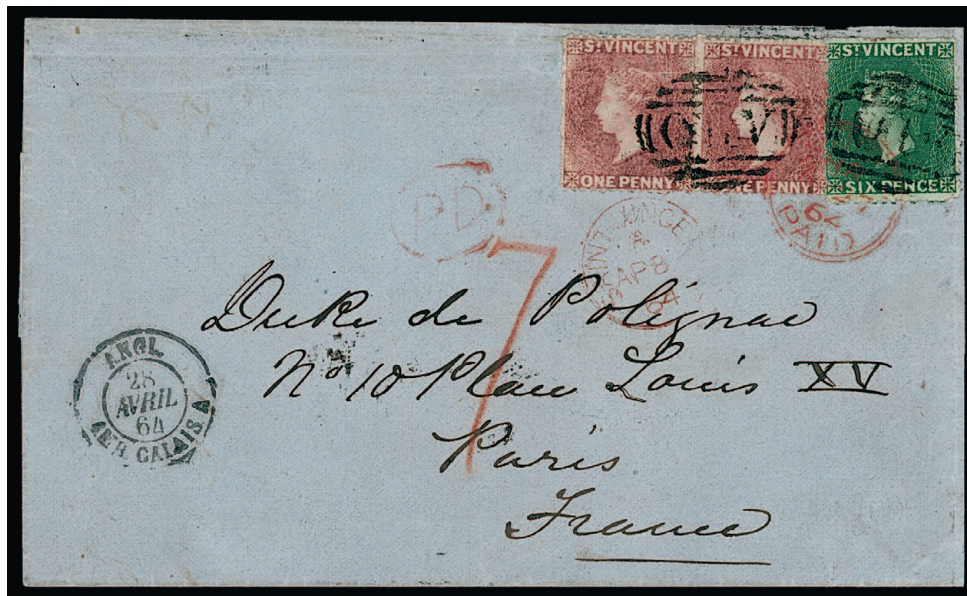 ST VINCENT ST VINCENT ST VINCENT
ONE PENNY ONE PENNY SIX PENCE
PD
SAINT VINCENT
A
AP 8
64
PAID
7
Duke de Polignac
No 10 Place Louis XV
Paris
France
ANGL.
28
AVRIL
64
CALAIS A